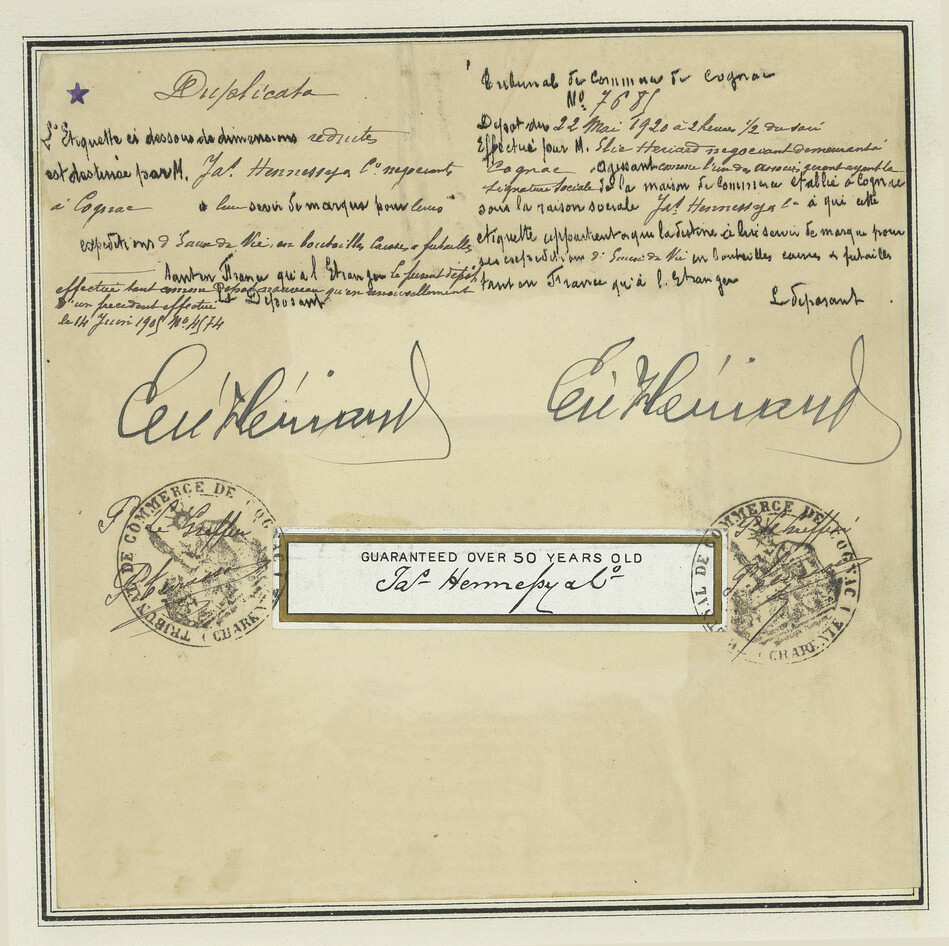 Duplicata
L'Etiquette ci dessous de dimensions reduites
est destinée par M. Jas Hennessy & Co negociants
à Cognac a leur servir de marque pour leurs
expeditions d'Eaux de Vie en bouteilles caisses & futailles
tant en France qu'à l'Etranger le present dépôt
effectué tant comme Depot nouveau qu'en renouvellement
d'un precedent effectué Le Deposant
le 14 Juin 1905 No 4574
Tribunal de Commerce de Cognac
No 7685
Depot du 22 Mai 1920 à 2 heures 1/2 du soir
Effectué par M. Elie Heriard negociant demeurant à
Cognac agissant comme l'un des Associés gerant ayant la
signature sociale de la maison de Commerce etablie à Cognac
sous la raison sociale Jas Hennessy & Co à qui cette
etiquette appartient & qui la destine à lui servir de marque pour
ses expeditions d'Eaux de Vie en bouteilles caisses & futailles
tant en France qu'à l'Etranger
Le deposant
Elie Hériard
Elie Hériard
TRIBUNAL DE COMMERCE DE COGNAC (CHARENTE)
P. le Greffier
GUARANTEED OVER 50 YEARS OLD
Jas Hennessy & Co
TRIBUNAL DE COMMERCE DE COGNAC (CHARENTE)
P. le Greffier